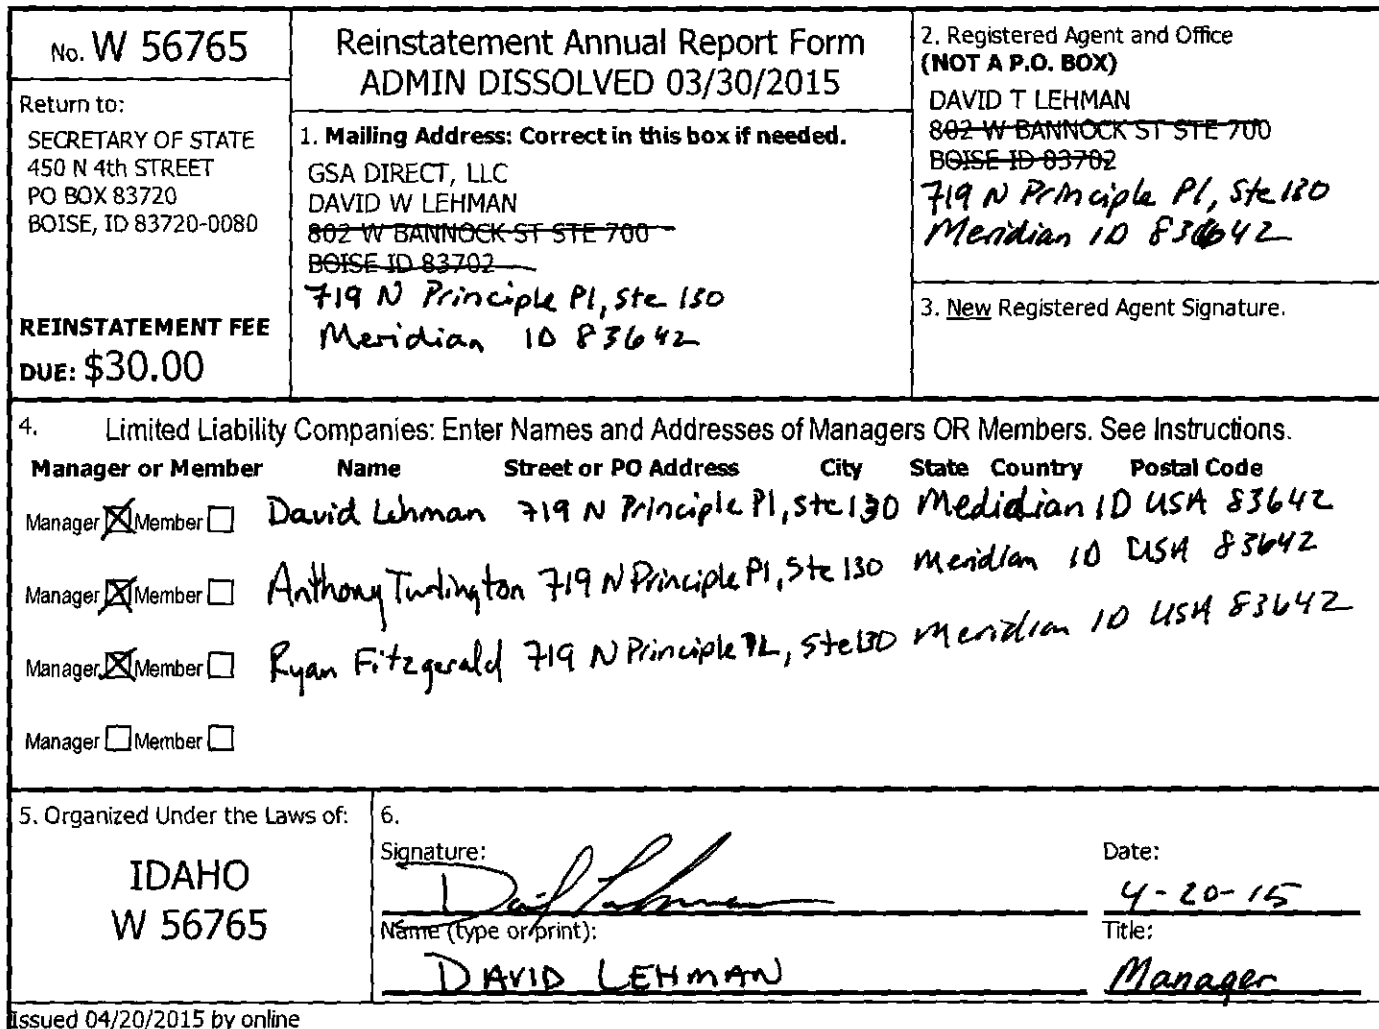 No. W 56765
Return to:
SECRETARY OF STATE
450 N 4th STREET
PO BOX 83720
BOISE, ID 83720-0080
REINSTATEMENT FEE
DUE: $30.00
Reinstatement Annual Report Form
ADMIN DISSOLVED 03/30/2015
1. Mailing Address: Correct in this box if needed.
GSA DIRECT, LLC
DAVID W LEHMAN
802 W BANNOCK ST STE 700
BOISE ID 83702
719 N Principle Pl, Ste 130
Meridian ID 83642
2. Registered Agent and Office
(NOT A P.O. BOX)
DAVID T LEHMAN
802 W BANNOCK ST STE 700
BOISE ID 83702
719 N Principle Pl, Ste 130
Meridian ID 83642
3. New Registered Agent Signature.
4. Limited Liability Companies: Enter Names and Addresses of Managers OR Members. See Instructions.
Manager or Member Name Street or PO Address City State Country Postal Code
Manager Member David Lehman 719 N Principle Pl, Ste 130 Medidian ID USA 83642
Manager Member Anthony Turlington 719 N Principle Pl, Ste 130 Meridian ID USA 83642
Manager Member Ryan Fitzgerald 719 N Principle PL, Ste 130 Meridian ID USA 83642
Manager Member
5. Organized Under the Laws of:
IDAHO
W 56765
6.
Signature: David Lehman
Date:
4-20-15
Name (type or print):
DAVID LEHMAN
Title:
Manager
Issued 04/20/2015 by online